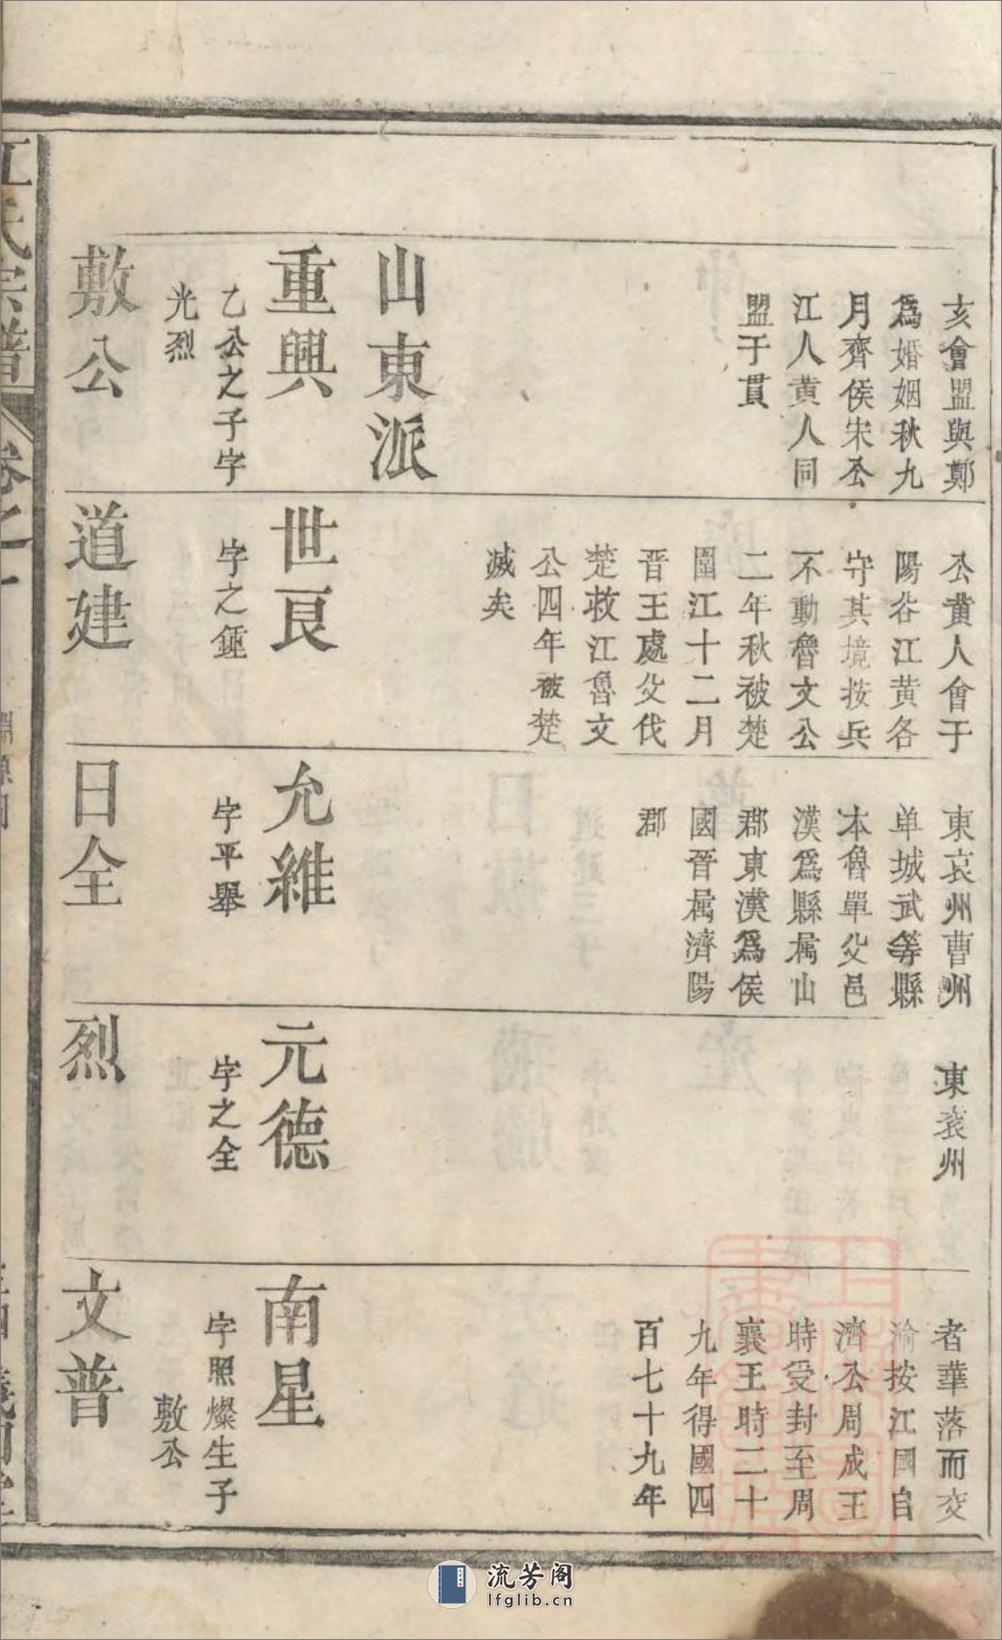 亥會盟與鄭
爲婚姻秋九
月齊侯宋公
江人黄人同
盟于貫
山東派
重興
乙公之子字
光烈
敷公
公黄人會于
陽谷江黄各
守其境按兵
不動魯文公
二年秋被楚
圍江十二月
晉王處父伐
楚救江魯文
公四年被楚
滅矣
世良
字之鍾
道建
東哀州曹州
单城武等縣
本魯單父邑
漢爲縣属山
郡東漢爲侯
國晉属濟陽
郡
允維
字平舉
日全
東袁州
元德
字之全
烈
者華落而交
渝按江國自
濟公周成王
時受封至周
襄王時二十
九年得國四
百七十九年
南星
字照燦生子
敷公
文普
江氏宗譜
卷之一
流芳阁
lfglib.cn